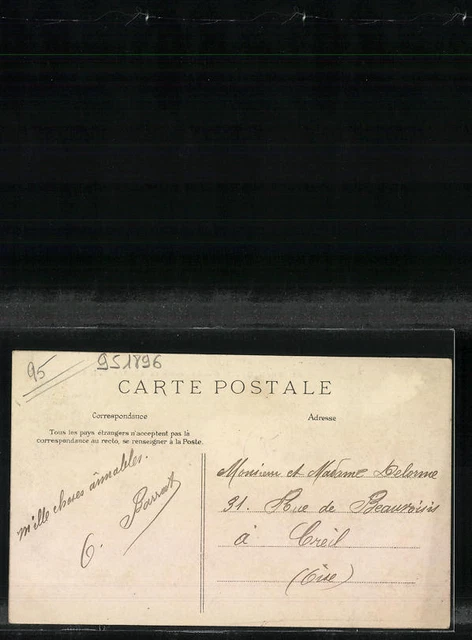 95
951896
CARTE POSTALE
Correspondance
Adresse
Tous les pays étrangers n'acceptent pas la
correspondance au recto, se renseigner à la Poste.
mille choses aimables.
Monsieur et Madame Delorme
31. Rue de Beauvoisis
à Creil
(Oise)